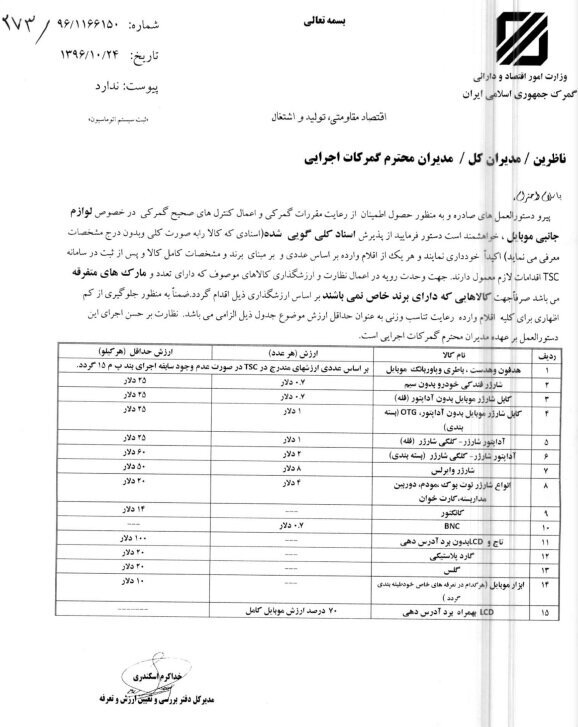 بسمه تعالی
وزارت امور اقتصاد و دارائی
گمرک جمهوری اسلامی ایران
شماره: ۹۶/۱۱۶۶۱۵۰ / ۲۷۳
تاریخ: ۱۳۹۶/۱۰/۲۴
پیوست: ندارد
«ثبت سیستم اتوماسیون»
اقتصاد مقاومتی، تولید و اشتغال
ناظرین / مدیران کل / مدیران محترم گمرکات اجرایی
با سلام و احترام
پیرو دستورالعمل های صادره و به منظور حصول اطمینان از رعایت مقررات گمرکی و اعمال کنترل های صحیح گمرکی در خصوص لوازم
جانبی موبایل ، خواهشمند است دستور فرمایید از پذیرش اسناد کلی گویی شده(اسنادی که کالا رابه صورت کلی وبدون درج مشخصات
معرفی می نماید) اکیداً خودداری نمایند و هر یک از اقلام وارده بر اساس عددی و بر مبنای برند و مشخصات کامل کالا و پس از ثبت در سامانه
TSC اقدامات لازم معمول دارند. جهت وحدت رویه در اعمال نظارت و ارزشگذاری کالاهای موصوف که دارای تعدد و مارک های متفرقه
می باشد صرفاًجهت کالاهایی که دارای برند خاص نمی باشند بر اساس ارزشگذاری ذیل اقدام گردد.ضمناً به منظور جلوگیری از کم
اظهاری برای کلیه اقلام وارده رعایت تناسب وزنی به عنوان حداقل ارزش موضوع جدول ذیل الزامی می باشد. نظارت بر حسن اجرای این
دستورالعمل بر عهده مدیران محترم گمرکات اجرایی است.
ردیف نام کالا ارزش (هر عدد) ارزش حداقل (هرکیلو)
۱ هدفون وهدست ، باطری وپاوربانک موبایل بر اساس عددی ارزشهای مندرج در TSC در صورت عدم وجود سابقه اجرای بند پ م ۱۵ گردد.
۲ شارژر فندکی خودرو بدون سیم ۰.۷ دلار ۲۵ دلار
۳ کابل شارژر موبایل بدون آداپتور (فله) ۰.۷ دلار ۲۵ دلار
۴ کابل شارژر موبایل بدون آداپتور، OTG (بسته ۱ دلار ۲۵ دلار
بندی)
۵ آداپتور شارژر- کلگی شارژر (فله) ۱ دلار ۲۵ دلار
۶ آداپتور شارژر- کلگی شارژر (بسته بندی) ۲ دلار ۶۰ دلار
۷ شارژر وایرلس ۸ دلار ۵۰ دلار
۸ انواع شارژر نوت بوک ،مودم، دوربین ۴ دلار ۲۰ دلار
مداربسته،کارت خوان
۹ کانکتور --- ۱۴ دلار
۱۰ BNC ۰.۷ دلار ---
۱۱ تاچ و LCDبدون برد آدرس دهی --- ۱۰۰ دلار
۱۲ گارد پلاستیکی --- ۲۰ دلار
۱۳ گلس --- ۲۰ دلار
۱۴ ابزار موبایل (هرکدام در تعرفه های خاص خودطبقه بندی --- ۱۰ دلار
گردد )
۱۵ LCD بهمراه برد آدرس دهی ۷۰ درصد ارزش موبایل کامل -------
خداکرم اسکندری
مدیرکل دفتر بررسی و تعیین ارزش و تعرفه